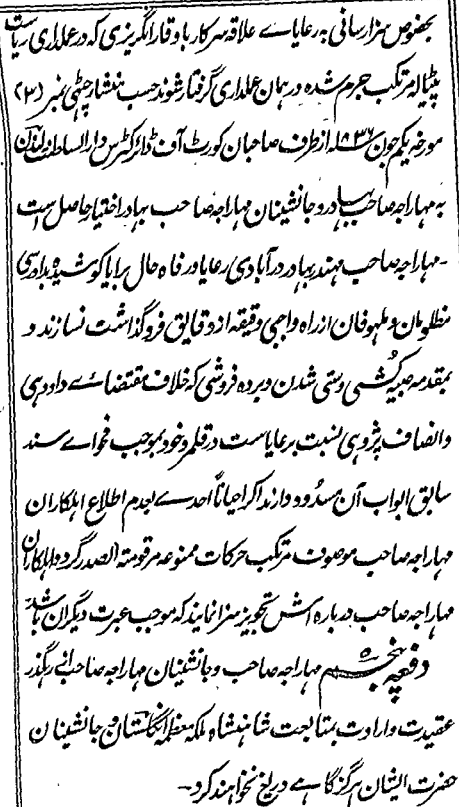 بخصوص سزا رسانی به رعایاے علاقه سرکار باوقار انگریزی که در عملداری ریاست
پٹیاله مرتکب جرم شده در همان عملداری گرفتار شوند حسب منشار چٹهی نمبر (۳)
مورخه یکم جون ۱۸۳۶ از طرف صاحبان کورٹ آف ڈائرکٹرس دار السلطنت لندن
به مهاراجه صاحب بهادر و جانشینان مهاراجه صاحب بهادر اختیار حاصل است
- مهاراجه صاحب مهندر بهادر در آبادی رعایا و رفاه حال برایا کوشیده بدادرسی
مظلومان و ملهوفان از راه واجبی دقیقه از دقایق فروگذاشت نسازند و
بمقدمه صبیه کُشی و ستی شدن و برده فروشی که خلاف مقتضاے داددهی
و انصاف پژوهی نسبت برعایاست در قلمرو خود بموجب فحواے سند
سابق ابواب آن مسدود دارند اگر احیاناً احدے بعدم اطلاع اهلکاران
مهاراجه صاحب موصوف مرتکب حرکات ممنوعه مرقومته الصدر گردد اهلکاران
مهاراجه صاحب درباره اش تجویز سزا نمایند که موجب عبرت دیگران باشد
دفعه پنجم مهاراجه صاحب و جانشینان مهاراجه صاحب از رهگذر
عقیدت و ارادت بمتابعت شاهنشاه ملکه معظمه انگلستان و جانشینان
حضرت ایشان هرگز گاهے دریغ نخواهند کرد -